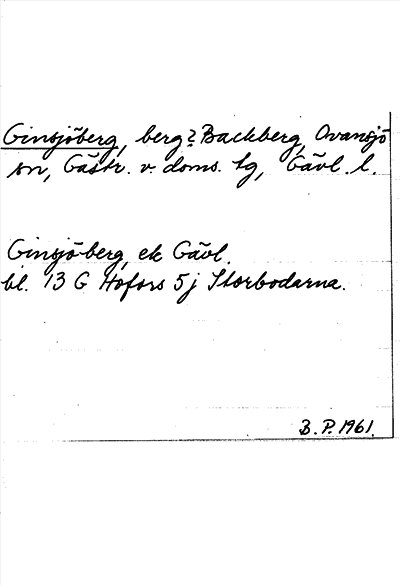 Ginsjöberg, berg? Backberg, Ovansjö
sn, Gästr. v. doms. tg, Gävl. l.
Ginsjöberg, ek Gävl.
bl. 13 G Hofors 5j Storbodarna.
B. P. 1961.